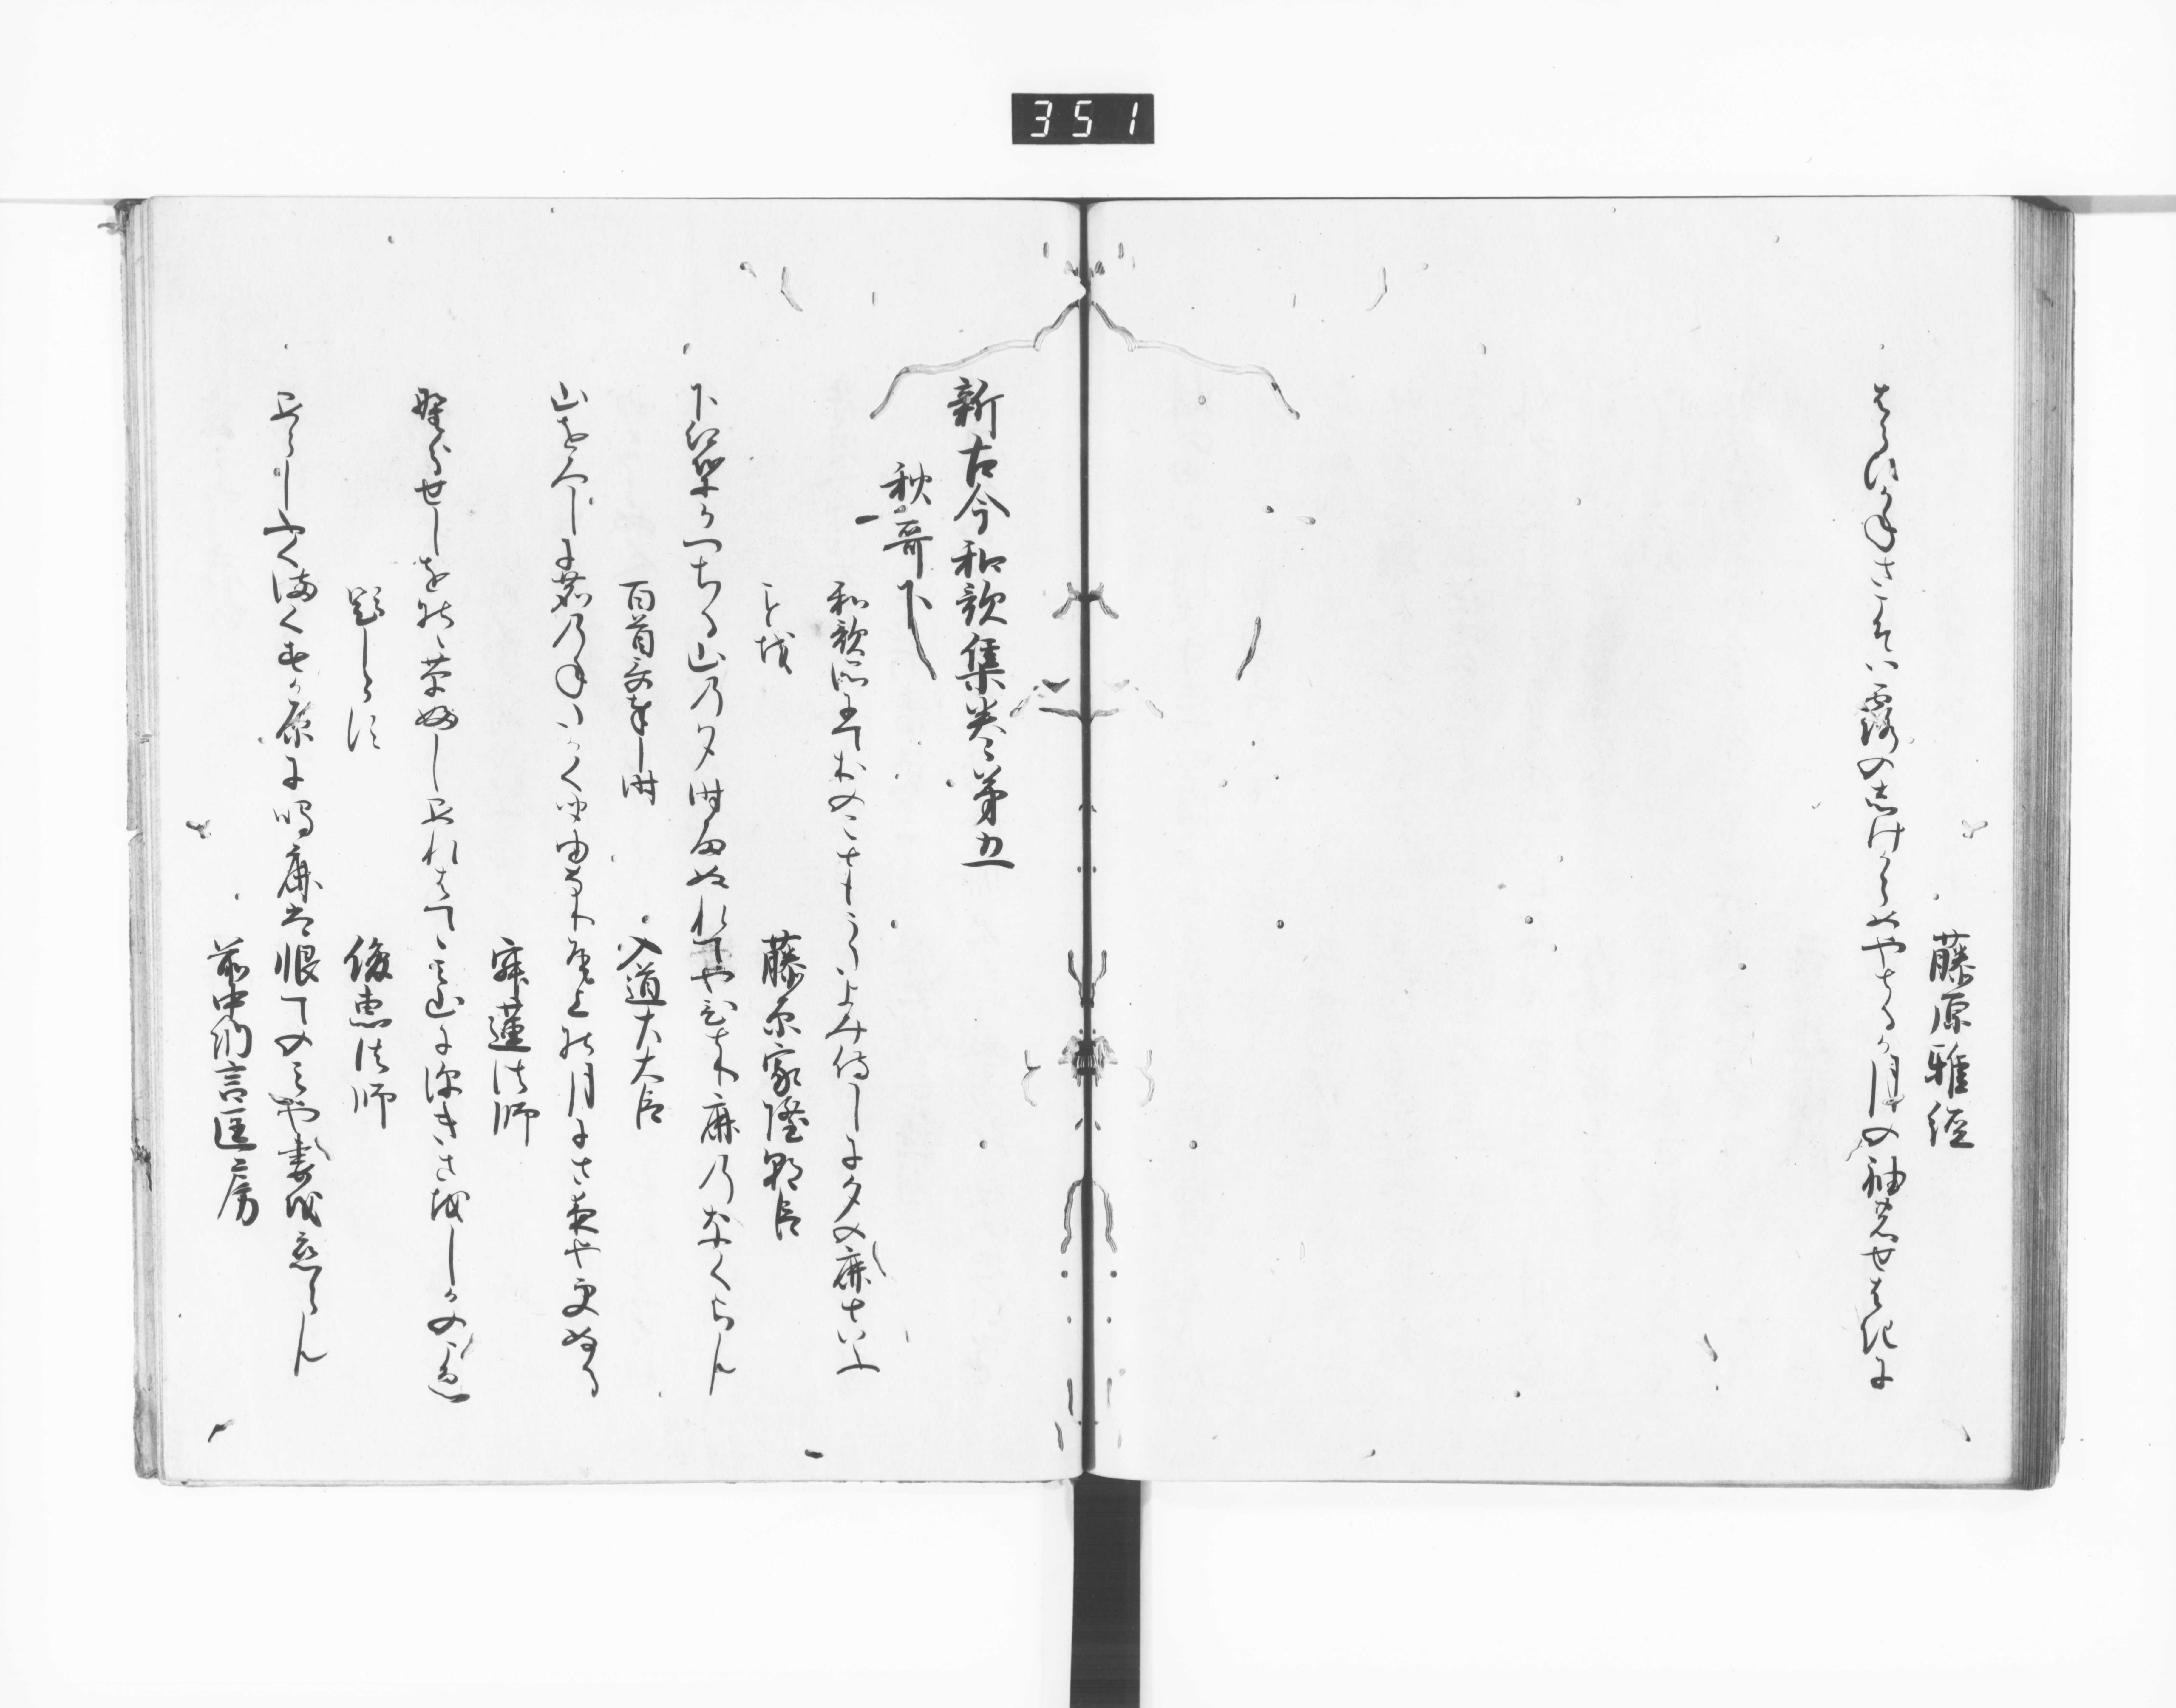 351
藤原雅経
はらひかねさこそは露のしけからめやとるか月の袖のせはきに
新古今和歌集巻第五
秋哥下
和歌所にておのこともうたよみ侍しに夕の鹿といふ
ことを
藤原家隆朝臣
下紅葉かつちる山の夕時雨ぬれてやひとり鹿のなくらん
百首哥奉し時
入道左大臣
山おろしに鹿のねたかく聞ゆなり尾上の月にさ夜や更ぬる
寂蓮法師
野分せしをのゝ草ふしあれはてゝみ山に深きさをしかの声
題しらす
俊恵法師
あらし吹まくすか原に鳴鹿は恨てのみや妻を恋らん
前中納言匡房